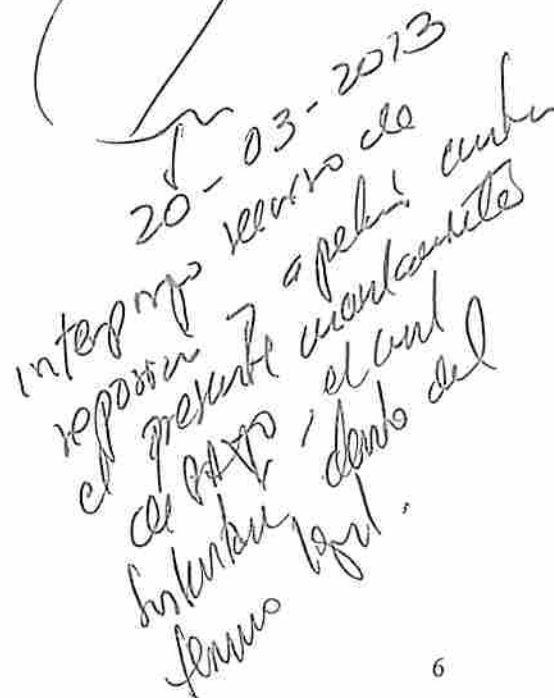 20-03-2013
interpongo recurso de
reposición y apelación contra
el presente mandamiento
de pago, el cual
sustentaré dentro del
término legal.
6